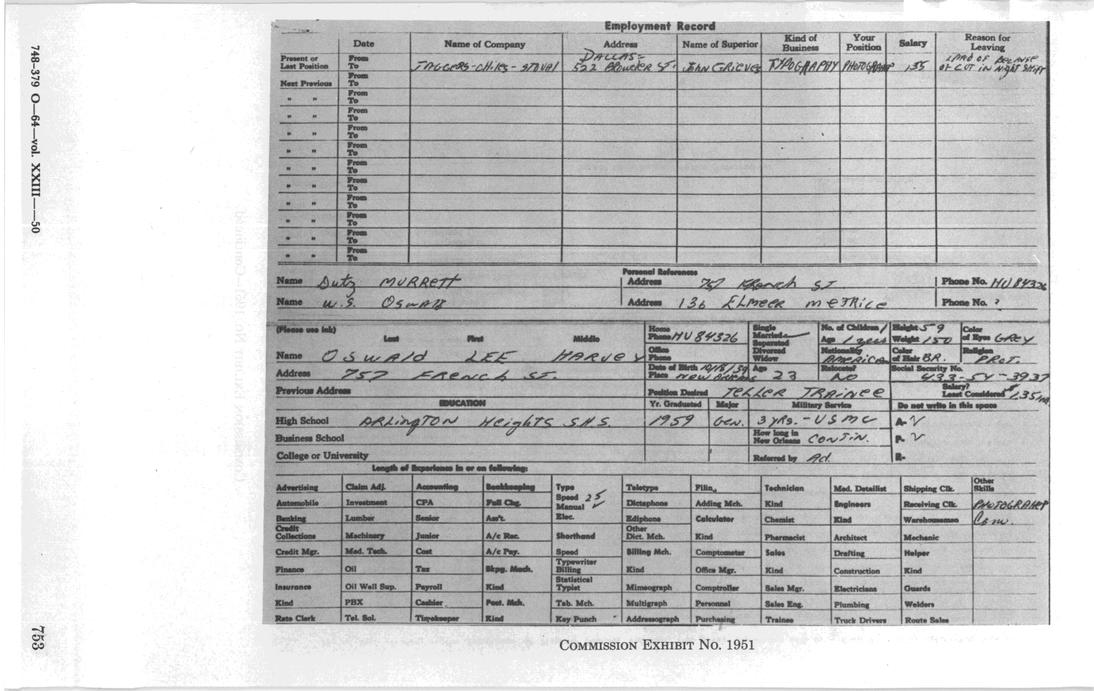 748-379 O—64—vol. XXIII——50
Employment Record
Date Name of Company Address Name of Superior Kind of Business Your Position Salary Reason for Leaving
Present or Last Position From To JAGGERS-CHILES-STOVAL DALLAS- 522 BROWDER ST. JOHN GRIEVES TYPOGRAPHY PHOTOGRAPH 135 LAID OF BECAUSE OF CUT IN NIGHT SHIFT
Next Previous From To
" " From To
" " From To
" " From To
" " From To
" " From To
" " From To
" " From To
" " From To
" " From To
Personal References
Name Dutz MURRETT Address 757 French ST. Phone No. HU 84326
Name W.S. OSWALD Address 136 ELMEER METRICE Phone No. ?
(Please use ink) Last First Middle Home Phone HU 84326 Single Married Separated Divorced Widow No. of Children 1 Height 5 9 Color of Eyes GREY
Age 1 year Weight 150
Name OSWALD LEE HARVEY Office Phone Nationality AMERICAN Color of Hair BR. Religion PROT.
Address 757 FRENCH ST. Date of Birth 10/18/39 Age 23 Place NEW ORLEANS Relocate? NO Social Security No. 433-54-3937
Previous Address Position Desired TELLER TRAINEE Salary? Least Considered $1.35
EDUCATION Yr. Graduated Major Military Service Do not write in this space
High School ARLINGTON HEIGHTS S.H.S. 1959 Gen. 3 yrs. - USMC A- V
Business School How long in New Orleans CONTIN. P- V
College or University Referred by Ad. R-
Length of Experience in or on following:
Advertising Claim Adj. Accounting Bookkeeping Type Teletype Filing Technician Med. Detailist Shipping Clk. Other Skills
Automobile Investment CPA Full Chg. Speed 25 Manual ✓ Dictaphone Adding Mch. Kind Engineers Receiving Clk. PHOTOGRAPHY
Banking Lumber Senior Ass't. Elec. Ediphone Calculator Chemist Kind Warehouseman Com.
Credit Collections Machinery Junior A/c Rec. Shorthand Other Dict. Mch. Kind Pharmacist Architect Mechanic
Credit Mgr. Med. Tech. Cost A/c Pay. Speed Billing Mch. Comptometer Sales Drafting Helper
Finance Oil Tax Bkpg. Mach. Typewriter Billing Kind Office Mgr. Kind Construction Kind
Insurance Oil Well Sup. Payroll Kind Statistical Typist Mimeograph Comptroller Sales Mgr. Electricians Guards
Kind PBX Cashier Post. Mch. Tab. Mch. Multigraph Personnel Sales Eng. Plumbing Welders
Rate Clerk Tel. Sol. Timekeeper Kind Key Punch Addressograph Purchasing Trainee Truck Drivers Route Sales
753
COMMISSION EXHIBIT No. 1951